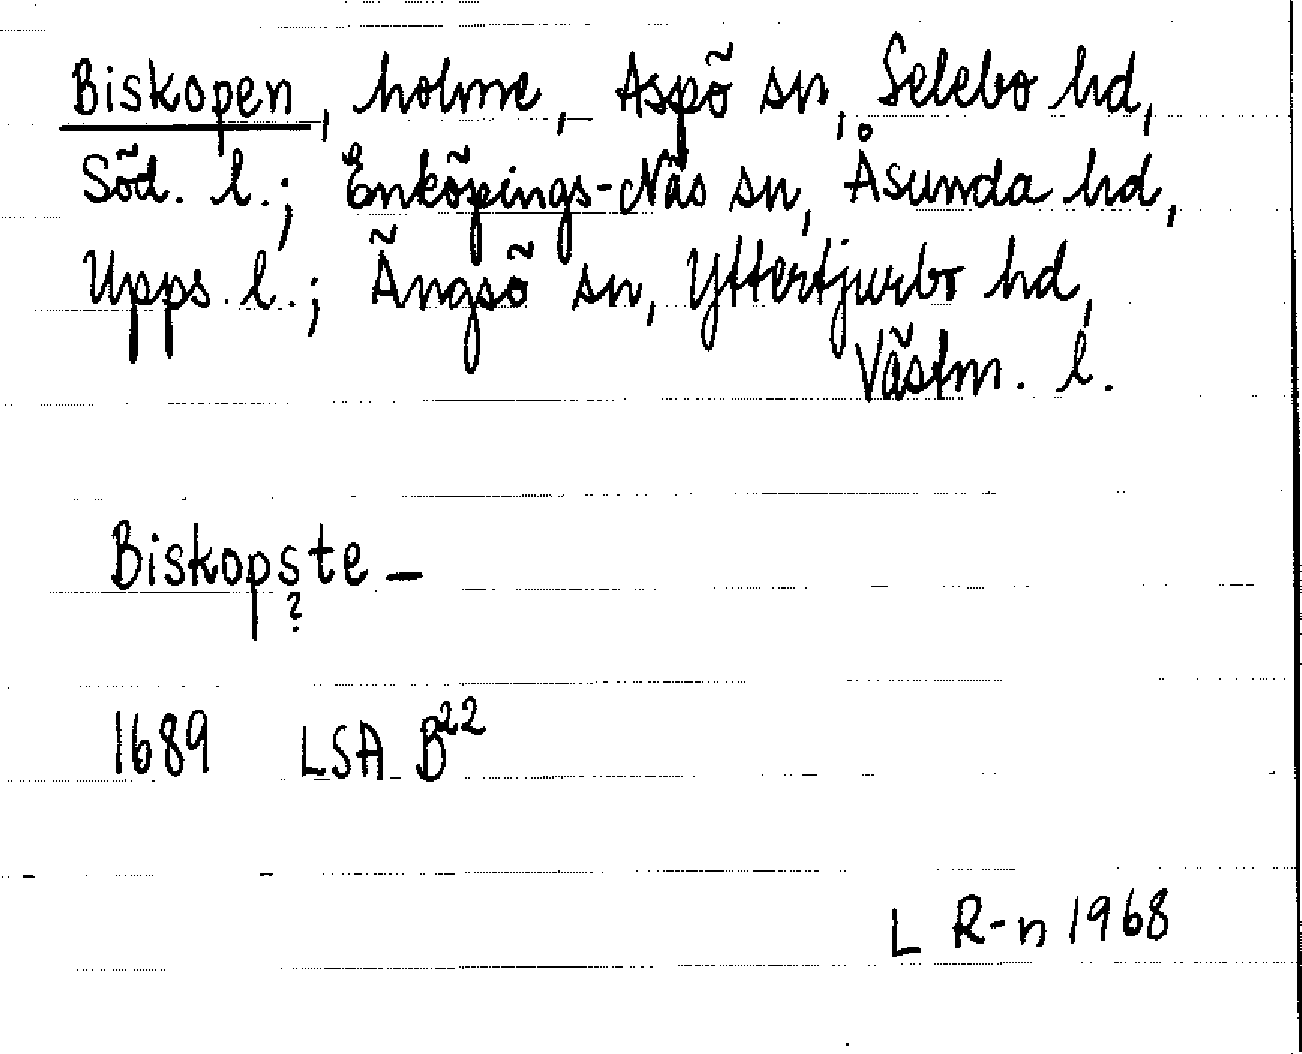 Biskopen, holme, Aspö sn, Selebo hd,
Söd. l.; Enköpings-Näs sn, Åsunda hd,
Upps. l.; Ängsö sn, Yttertjurbo hd,
Västm. l.
Biskopste –
?
1689 LSA B²²
L R-n 1968